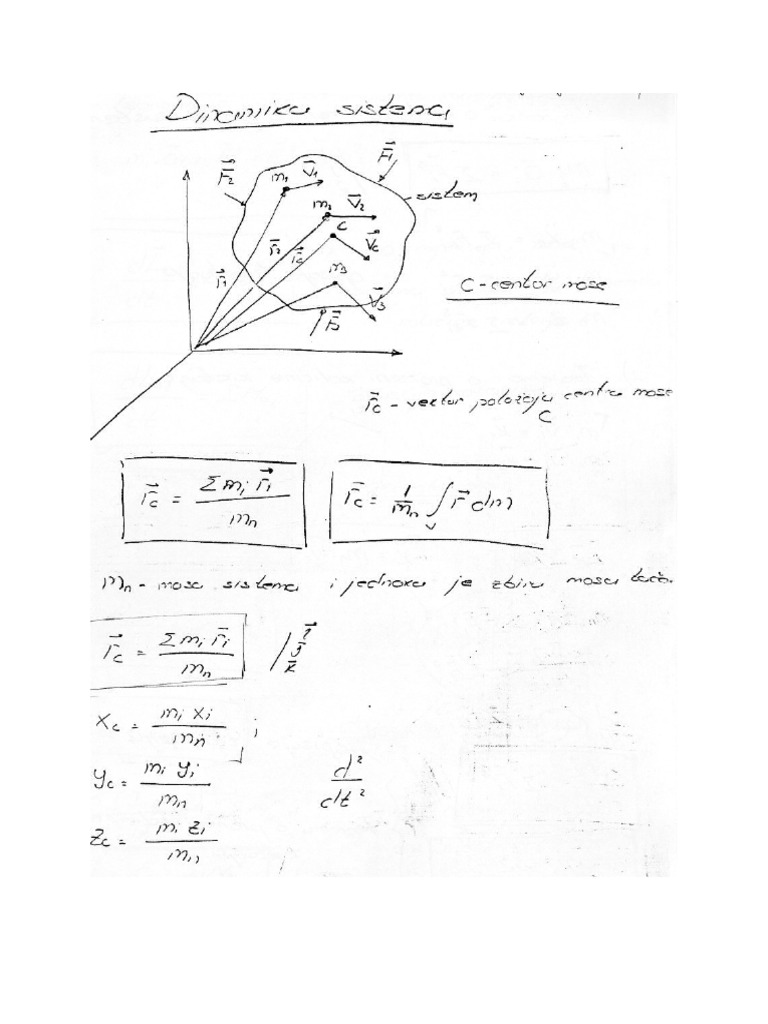 Dinamika sistema
F⃗2
m1
V⃗1
F⃗1
sistem
m2
V⃗2
C
r⃗1
r⃗2
r⃗c
V⃗c
m3
V⃗3
F⃗3
C - centar mase
r⃗c - vector položaja centra mase
C
r⃗c = Σ mi r⃗i / mn
r⃗c = 1/mn ∫V r⃗ dm
mn - masa sistema i jednaka je zbiru masa tač.
r⃗c = Σ mi r⃗i / mn / i⃗ j⃗ k⃗
xc = mi xi / mn ;
yc = mi yi / mn
d² / dt²
zc = mi zi / mn